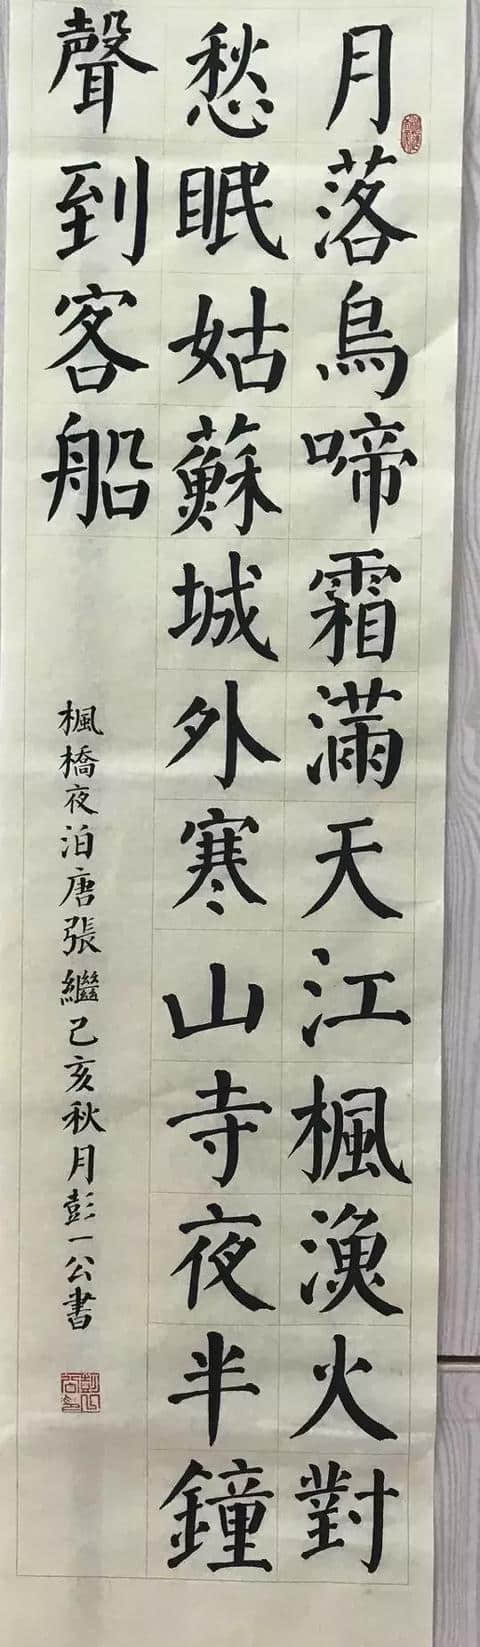 月落烏啼霜滿天江楓漁火對
愁眠姑蘇城外寒山寺夜半鐘
聲到客船
楓橋夜泊唐張繼己亥秋月彭一公書